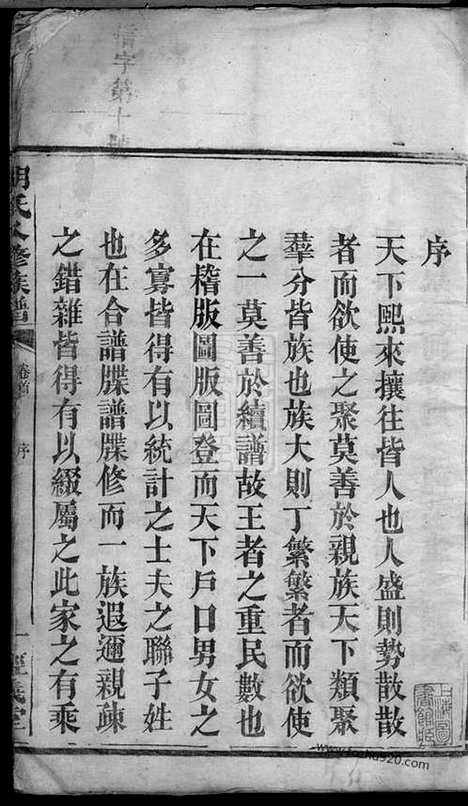 信字第十
序
天下熙來攘往皆人也人盛則勢散散
者而欲使之聚莫善於親族天下類聚
羣分皆族也族大則丁繁繁者而欲使
之一莫善於續譜故王者之重民數也
在稽版圖版圖登而天下戶口男女之
多寡皆得有以統計之士夫之聯子姓
也在合譜牒譜牒修而一族遐邇親疎
之錯雜皆得有以綴屬之此家之有乘
氏 修族譜
卷首
序
一
堂
www.fozhu920.com